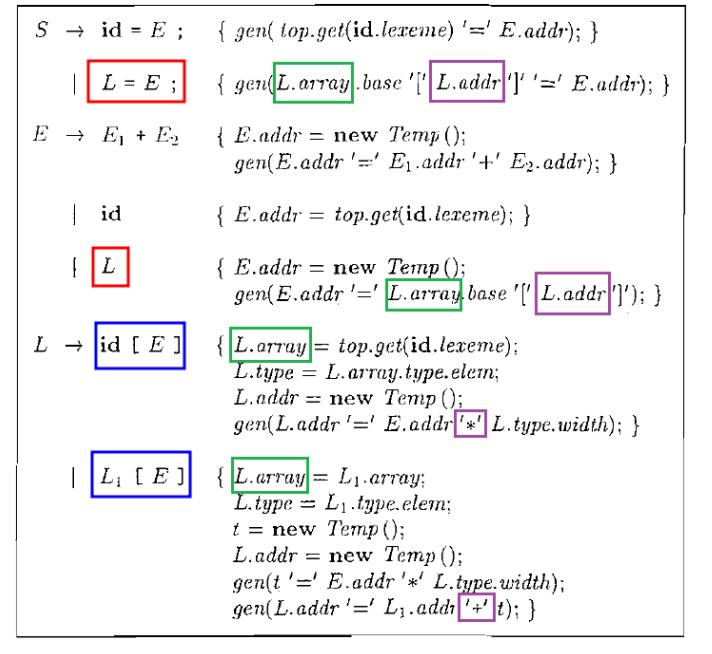 S → id = E ; { gen( top.get(id.lexeme) '=' E.addr); }
| L = E ; { gen(L.array.base '[' L.addr ']' '=' E.addr); }
E → E₁ + E₂ { E.addr = new Temp();
gen(E.addr '=' E₁.addr '+' E₂.addr); }
| id { E.addr = top.get(id.lexeme); }
| L { E.addr = new Temp();
gen(E.addr '=' L.array.base '[' L.addr ']'); }
L → id [ E ] { L.array = top.get(id.lexeme);
L.type = L.array.type.elem;
L.addr = new Temp();
gen(L.addr '=' E.addr '*' L.type.width); }
| L₁ [ E ] { L.array = L₁.array;
L.type = L₁.type.elem;
t = new Temp();
L.addr = new Temp();
gen(t '=' E.addr '*' L.type.width);
gen(L.addr '=' L₁.addr '+' t); }